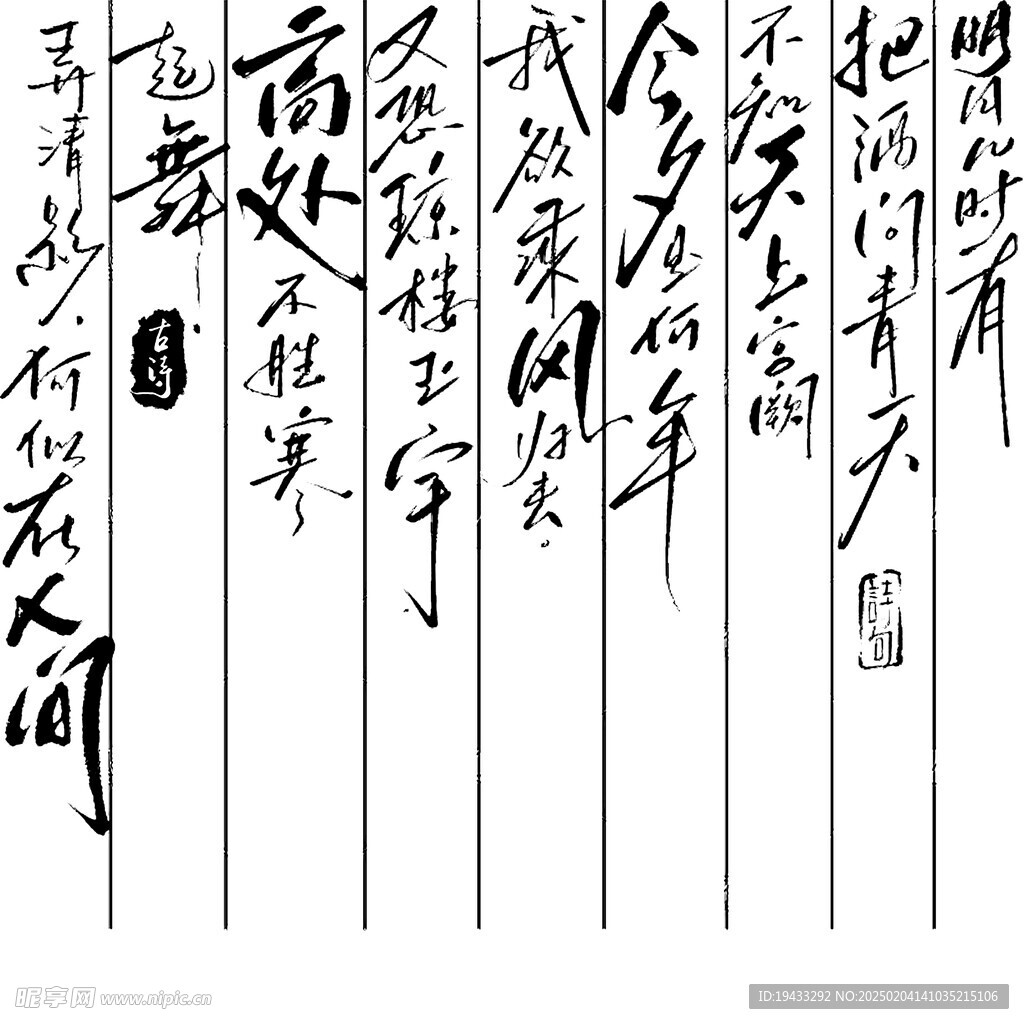 明月几时有
把酒问青天
詩句
不知天上宫阙
今夕是何年
我欲乘风归去。
又恐琼楼玉宇
高处不胜寒
起舞
弄清影，何似在人间
昵享网 www.nipic.cn
ID:19433292 NO:20250204141035215106